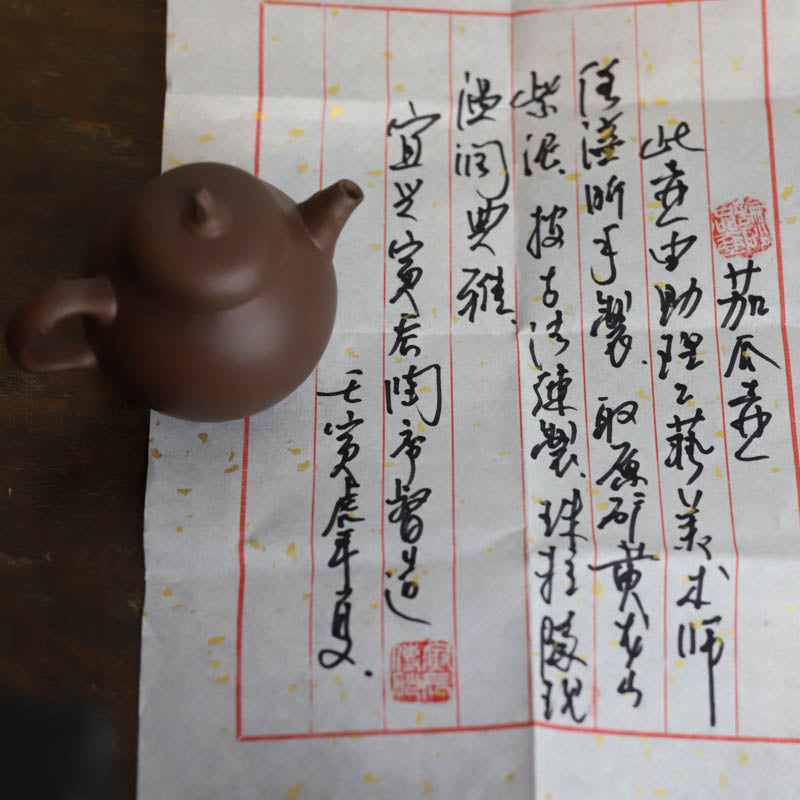 茄瓜壶
此壶由助理工藝美术师
昕手製、取原矿黄龙山
紫泥、按古法練製、珠粒隐现
温润典雅、
宜兴寅陶督造
壬寅虎年夏.